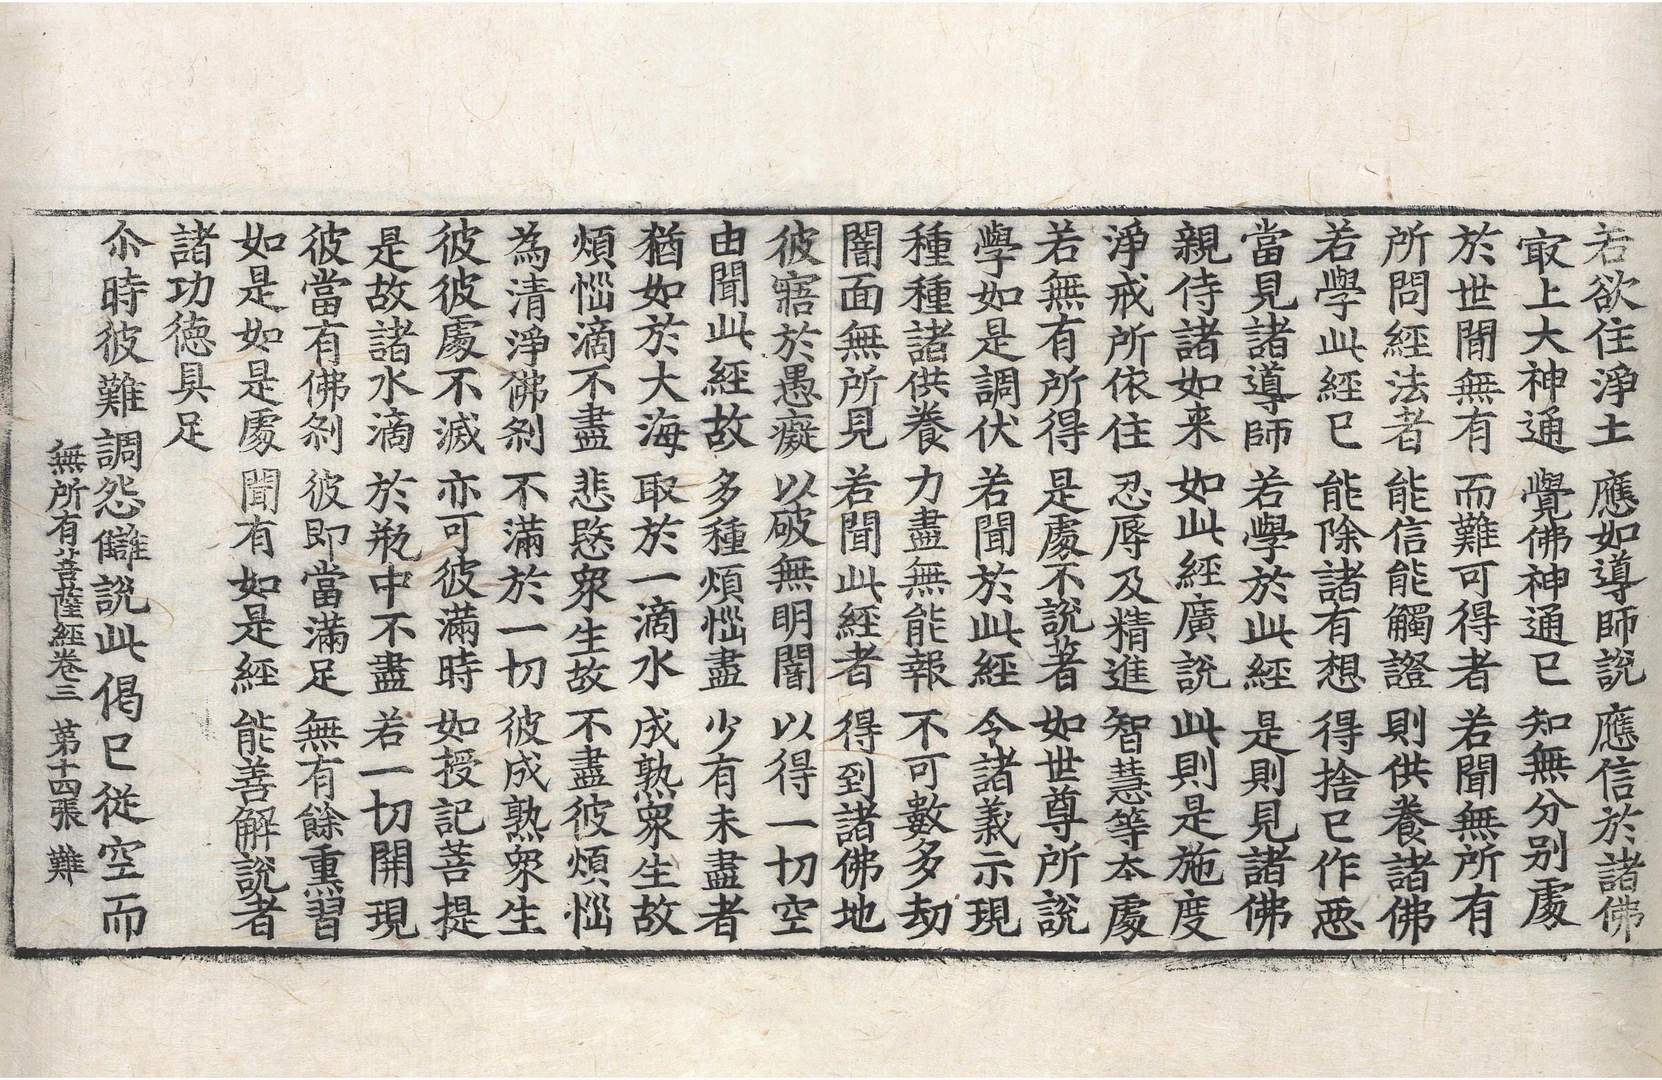 若欲住淨土 應如導師說 應信於諸佛
㝡上大神通 覺佛神通已 知無分別處
於世間無有 而難可得者 若聞無所有
所問經法者 能信能觸證 則供養諸佛
若學此經已 能除諸有想 得捨已作惡
當見諸導師 若學於此經 是則見諸佛
親侍諸如来 如此經廣說 此則是施度
淨戒所依住 忍辱及精進 智慧等夲處
若無有所得 是處不說著 如世尊所說
學如是調伏 若聞於此經 令諸義示現
種種諸供養 力盡無能報 不可數多劫
闇面無所見 若聞此經者 得到諸佛地
彼寤於愚癡 以破無明闇 以得一切空
由聞此經故 多種煩惱盡 少有未盡者
猶如於大海 取於一滴水 成熟眾生故
煩惱滴不盡 悲愍眾生故 不盡彼煩惱
為清淨佛剎 不滿於一切 彼成熟眾生
彼彼處不滅 亦可彼滿時 如授記菩提
是故諸水滴 於瓶中不盡 若一切開現
彼當有佛剎 彼即當滿足 無有餘熏習
如是如是處 聞有如是經 能善解說者
諸功德具足
尒時彼難調怨讎說此偈已從空而
無所有菩薩經卷三 第十四張 難